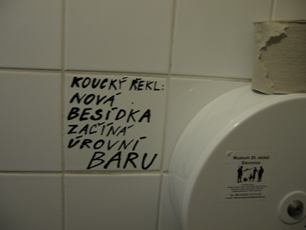 KOUCKÝ ŘEKL:
NOVÁ
BESÍDKA
ZAČÍNÁ
ÚROVNÍ
BARU